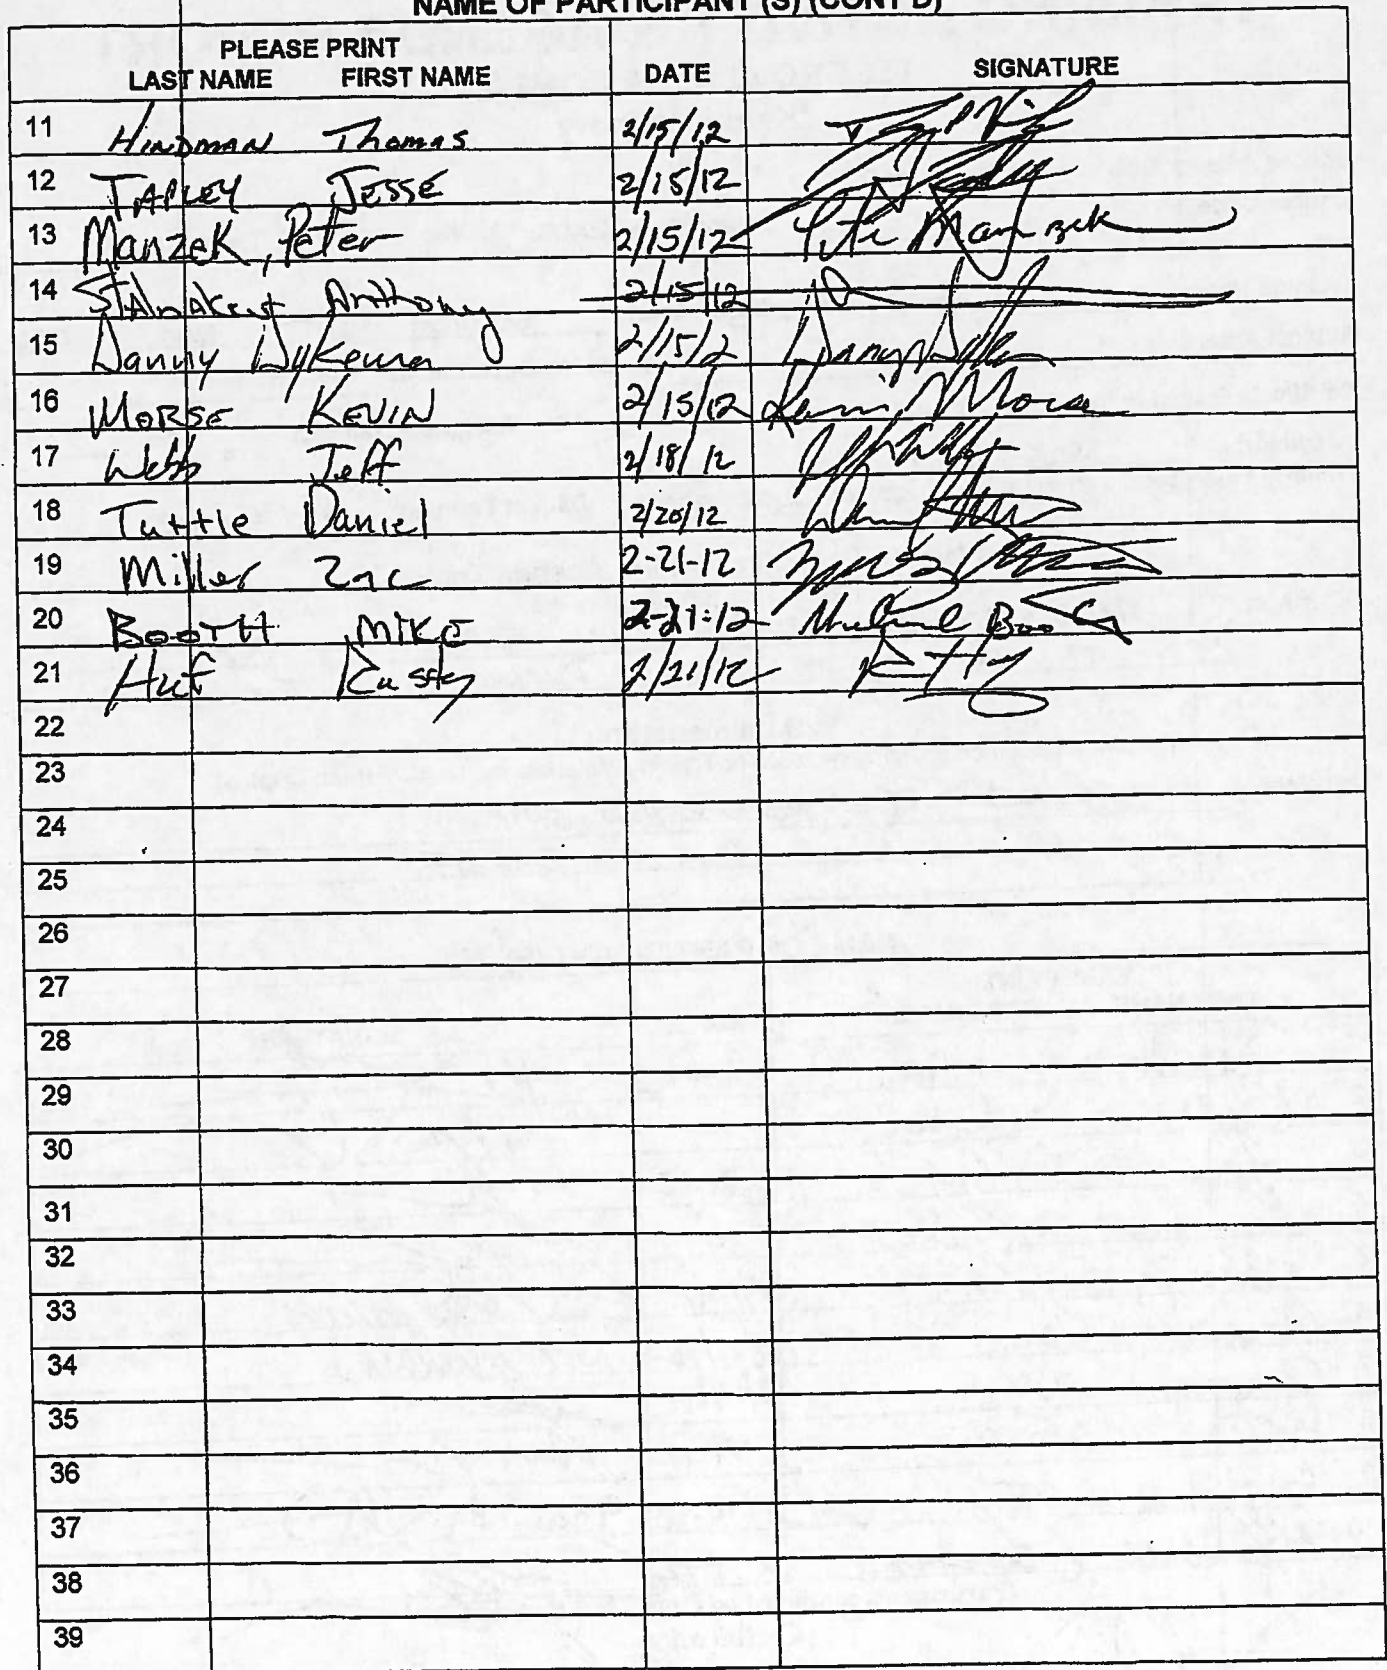 NAME OF PARTICIPANT (S) (CONT'D)
PLEASE PRINT
LAST NAME FIRST NAME DATE SIGNATURE
11 HINDMAN Thomas 2/15/12
12 TAPLEY JESSE 2/15/12
13 Manzek, Peter 2/15/12 Pete Manzek
14 Anthony 2/15/12
15 Danny 2/15/2 Danny
16 MORSE KEVIN 2/15/12 Kevin Morse
17 Webb Jeff 2/18/12
18 Tuttle Daniel 2/20/12
19 Miller Zac 2-21-12
20 BOOTH MIKE 2-21-12 Michael Booth
21 Huf Rusty 2/21/12
22
23
24
25
26
27
28
29
30
31
32
33
34
35
36
37
38
39